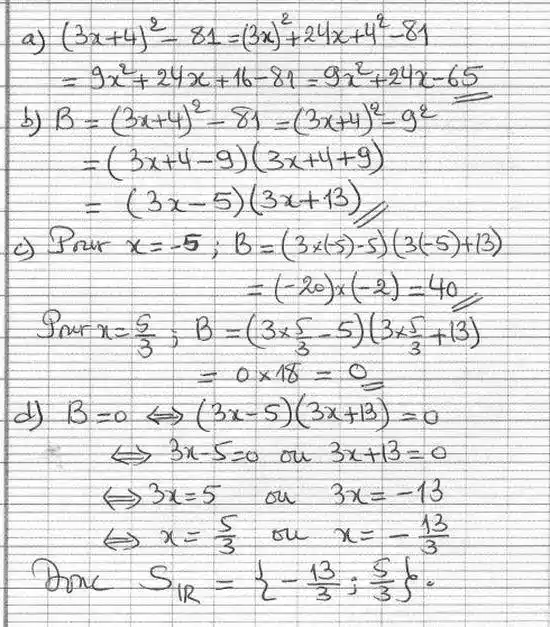 a) (3x+4)² - 81 = (3x)² + 24x + 4² - 81
= 9x² + 24x + 16 - 81 = 9x² + 24x - 65
b) B = (3x+4)² - 81 = (3x+4)² - 9²
= (3x+4-9)(3x+4+9)
= (3x-5)(3x+13)
c) Pour x = -5 ; B = (3×(-5)-5)(3(-5)+13)
= (-20)×(-2) = 40
Pour x = 5/3 ; B = (3×5/3 - 5)(3×5/3 + 13)
= 0×18 = 0
d) B=0 ⟺ (3x-5)(3x+13) = 0
⟺ 3x-5=0 ou 3x+13=0
⟺ 3x=5 ou 3x=-13
⟺ x = 5/3 ou x = -13/3
Donc S_IR = {-13/3 ; 5/3}.